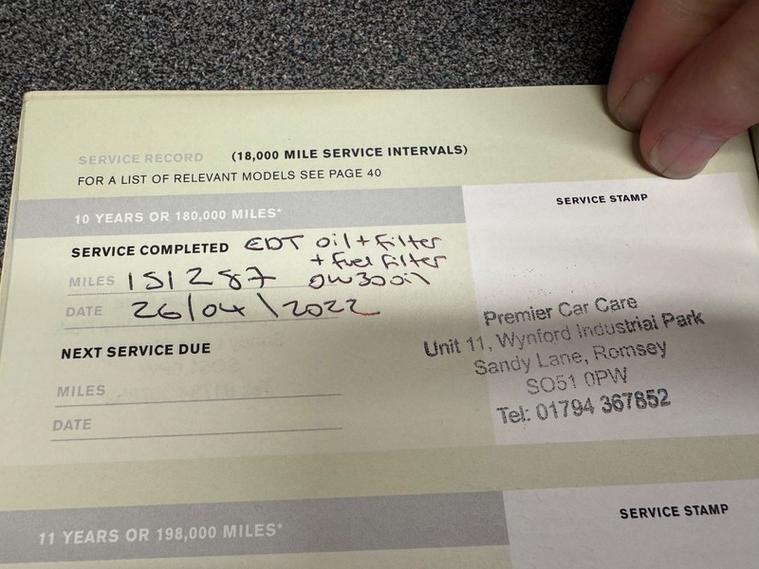 SERVICE RECORD (18,000 MILE SERVICE INTERVALS)
FOR A LIST OF RELEVANT MODELS SEE PAGE 40
10 YEARS OR 180,000 MILES*
SERVICE STAMP
SERVICE COMPLETED EDT oil + filter
+ fuel filter
MILES 151287 0w30 oil
DATE 26/04/2022
NEXT SERVICE DUE
MILES
DATE
Premier Car Care
Unit 11, Wynford Industrial Park
Sandy Lane, Romsey
SO51 0PW
Tel: 01794 367852
11 YEARS OR 198,000 MILES*
SERVICE STAMP